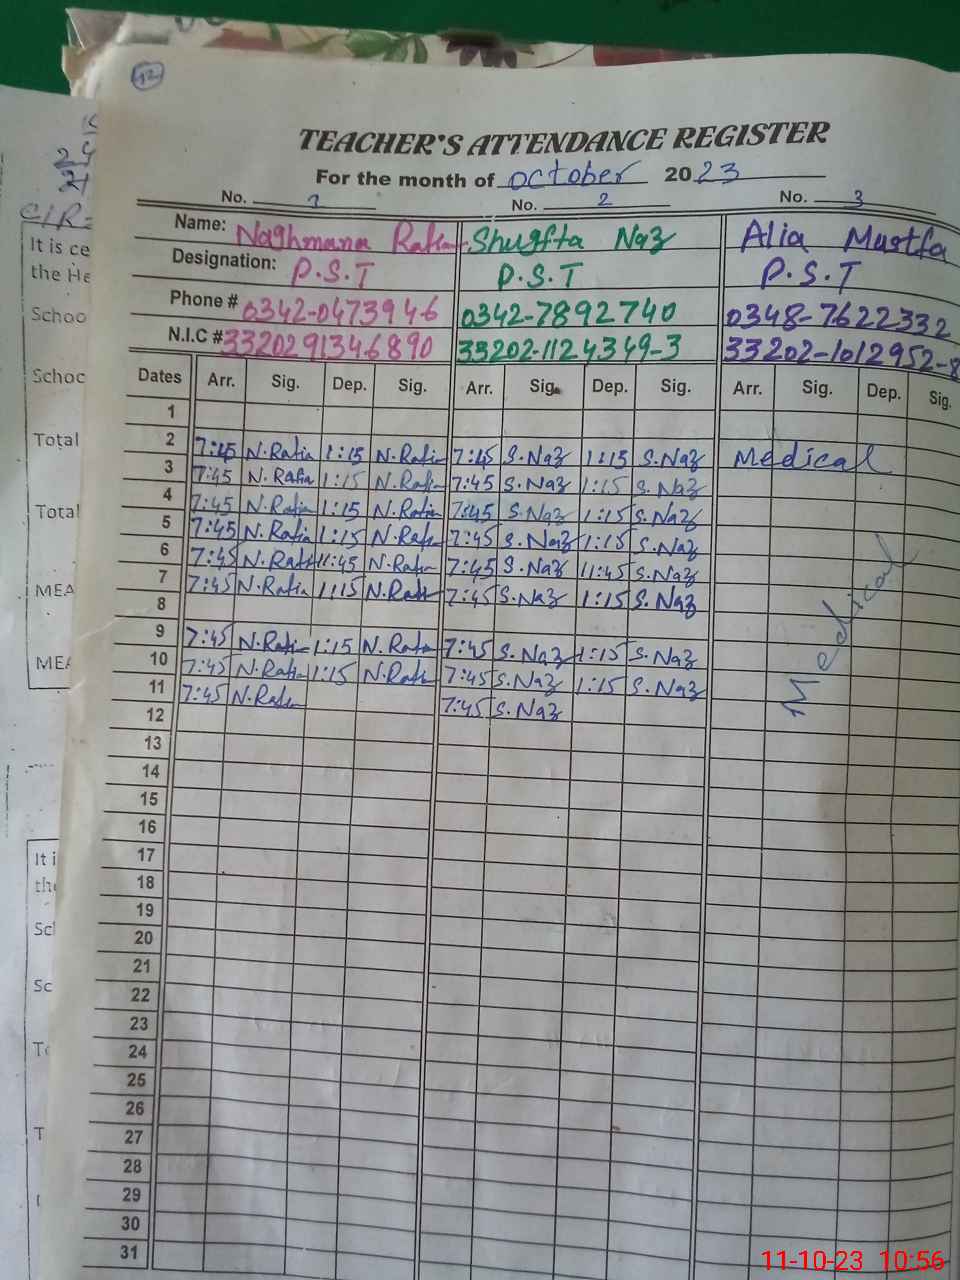 12
TEACHER'S ATTENDANCE REGISTER
For the month of October 2023
No. 1 No. 2 No. 3
Name: Naghmana Shugfta Naz Alia Mustfa
Designation: P.S.T P.S.T P.S.T
Phone # 0342-0473946 0342-7892740 0348-7622332
N.I.C # 3320291346890 33202-1124349-3 33202-1012952-8
Dates Arr. Sig. Dep. Sig. Arr. Sig. Dep. Sig. Arr. Sig. Dep. Sig.
1
2 7:45 N.Rafia 1:15 N.Rafia 7:45 S.Naz 1:15 S.Naz Medical
3 7:45 N.Rafia 1:15 N.Rafia 7:45 S.Naz 1:15 S.Naz
4 7:45 N.Rafia 1:15 N.Rafia 7:45 S.Naz 1:15 S.Naz
5 7:45 N.Rafia 1:15 N.Rafia 7:45 S.Naz 1:15 S.Naz
6 7:45 N.Rafia 11:45 N.Rafia 7:45 S.Naz 11:45 S.Naz
7 7:45 N.Rafia 1:15 N.Rafia 7:45 S.Naz 1:15 S.Naz
8
9 7:45 N.Rafia 1:15 N.Rafia 7:45 S.Naz 1:15 S.Naz
10 7:45 N.Rafia 1:15 N.Rafia 7:45 S.Naz 1:15 S.Naz
11 7:45 N.Rafia 7:45 S.Naz
Medical
12
13
14
15
16
17
18
19
20
21
22
23
24
25
26
27
28
29
30
31
It is ce
the He
Schoo
Schoc
Total
Total
MEA
MEA
It i
the
Scl
Sc
11-10-23 10:56